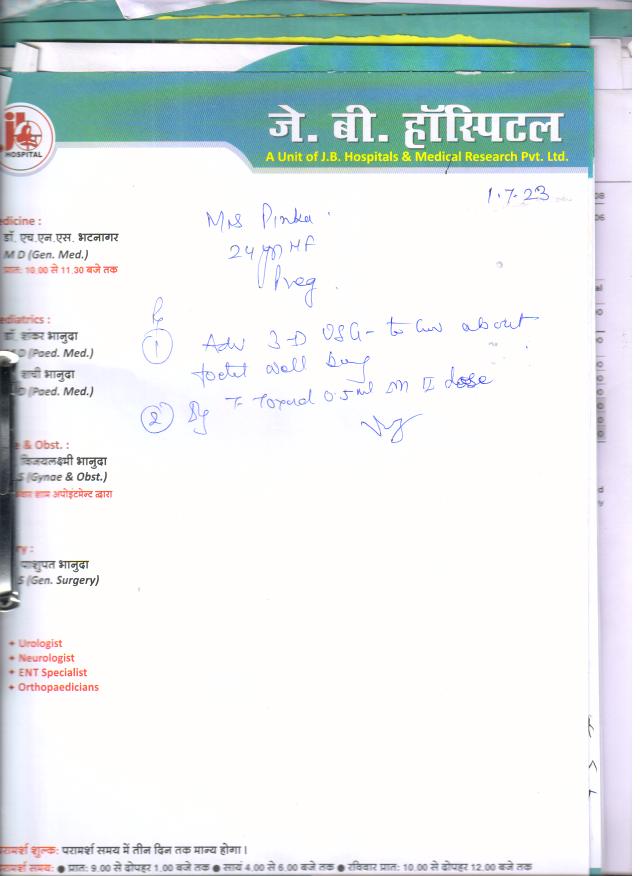 jb
HOSPITAL
जे. बी. हॉस्पिटल
A Unit of J.B. Hospitals & Medical Research Pvt. Ltd.
1.7.23
Mrs Pinka
24 yrs HF
Preg.
Rx
1 Adv 3-D USG - to about
foetal well being
2 T. Toxoid 0.5 ml IM II dose
edicine :
डॉ. एच.एन.एस. भटनागर
M D (Gen. Med.)
प्रात: 10.00 से 11.30 बजे तक
ediatrics :
डॉ. शंकर भानुदा
D (Paed. Med.)
शची भानुदा
D (Paed. Med.)
e & Obst. :
विजयलक्ष्मी भानुदा
S (Gynae & Obst.)
शाम अपोइंटमेन्ट द्वारा
ry :
पाशुपत भानुदा
S (Gen. Surgery)
+ Urologist
+ Neurologist
+ ENT Specialist
+ Orthopaedicians
रामर्श शुल्क: परामर्श समय में तीन दिन तक मान्य होगा।
रामर्श समय: ● प्रात: 9.00 से दोपहर 1.00 बजे तक ● सायं 4.00 से 6.00 बजे तक ● रविवार प्रात: 10.00 से दोपहर 12.00 बजे तक